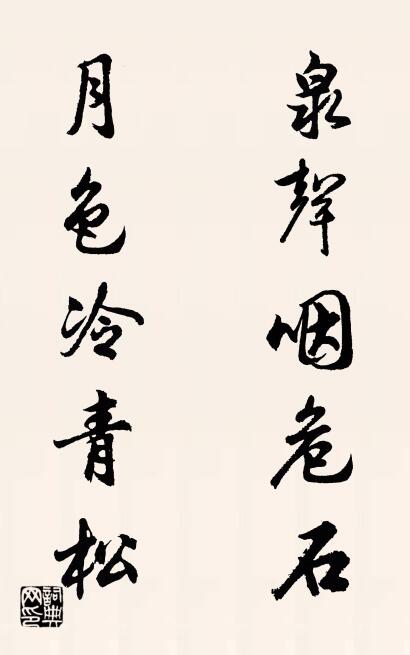 泉聲咽危石
月色冷青松
詞典網印